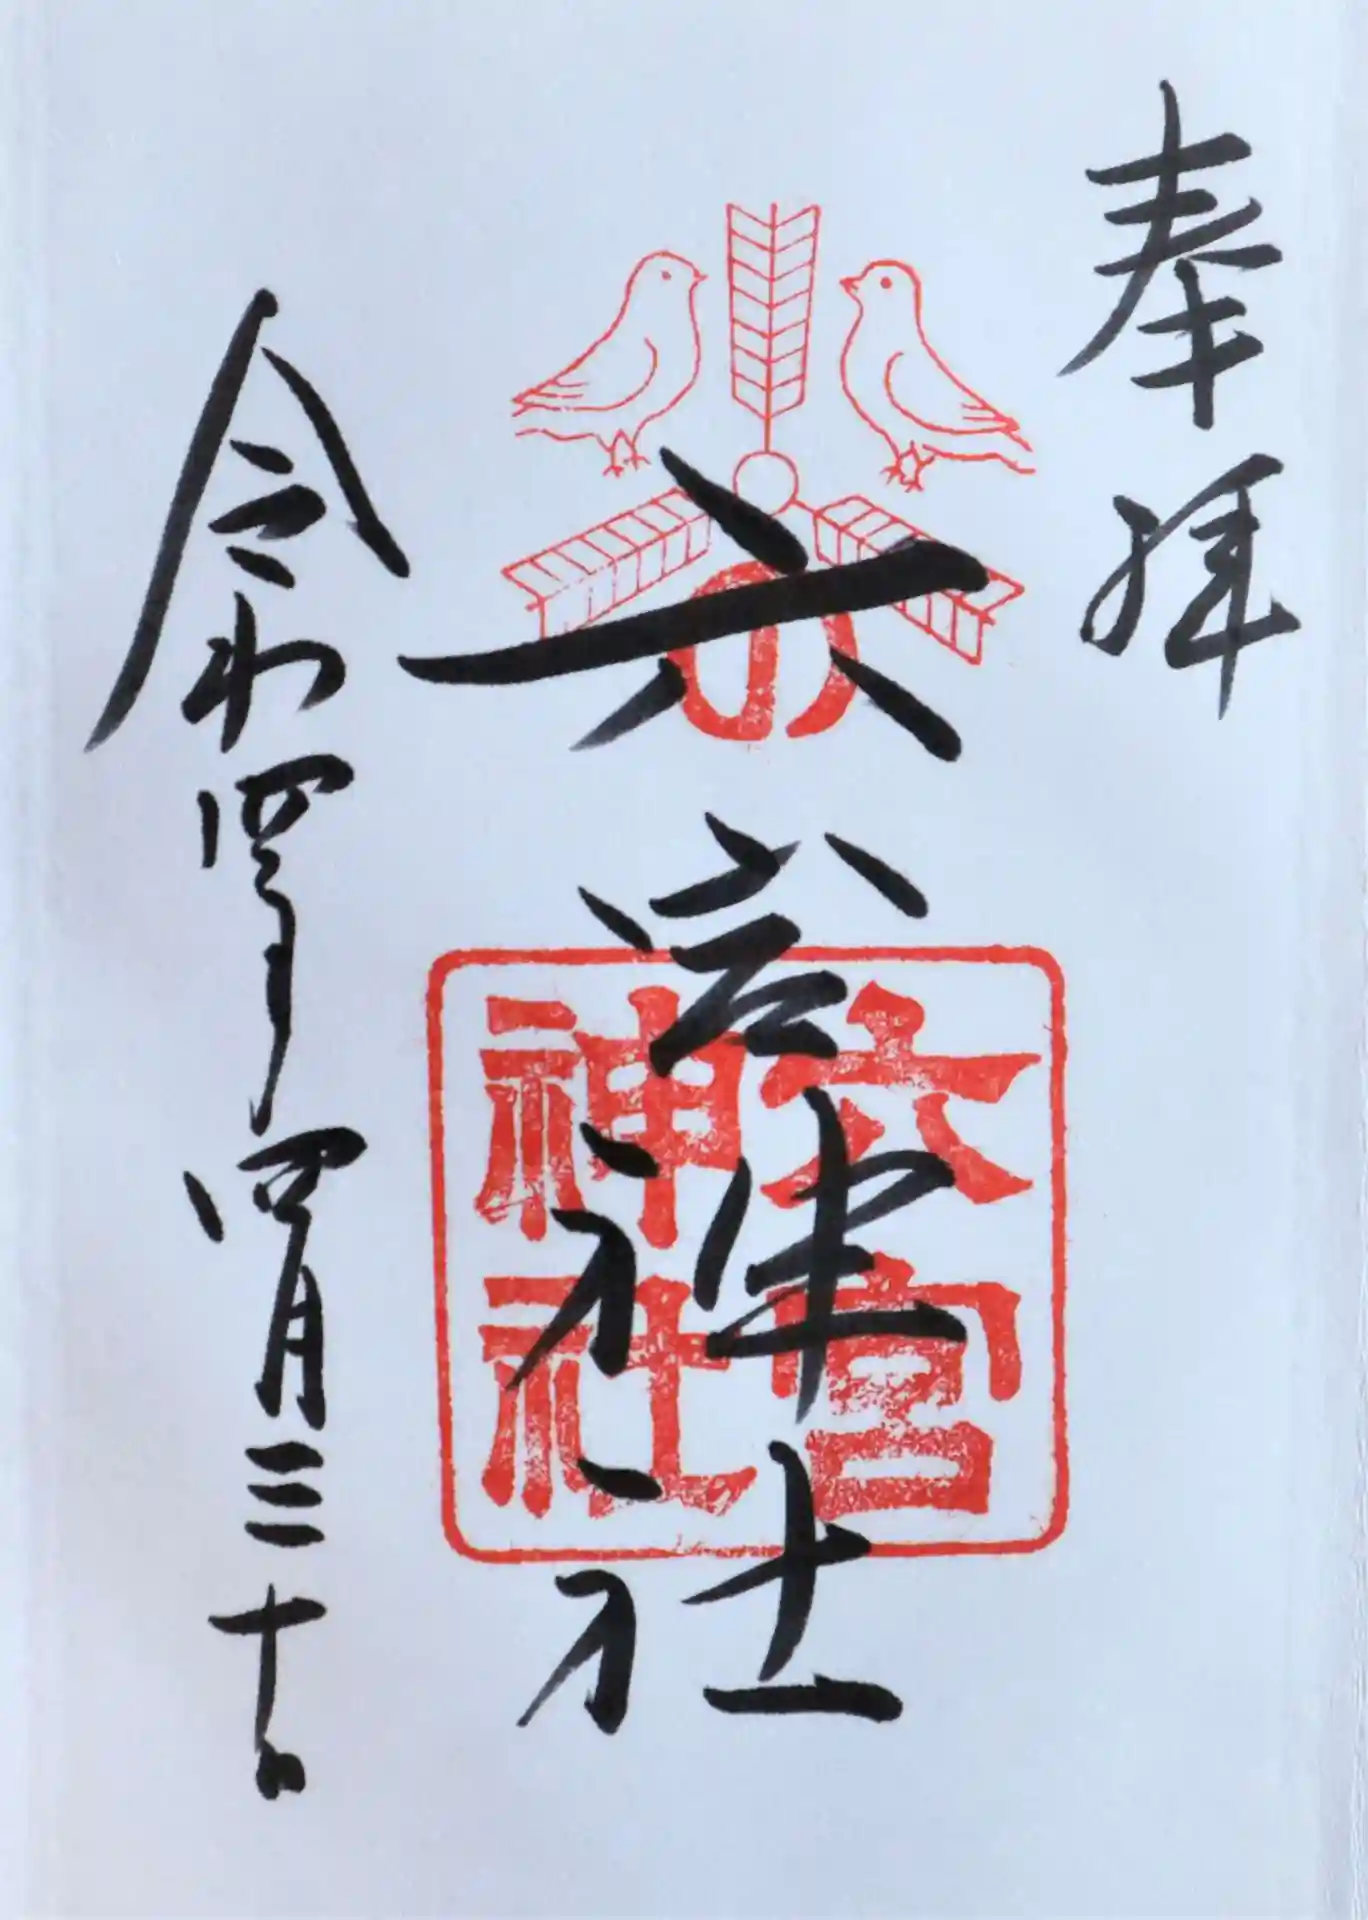 奉拝
六宮神社
六宮神社
令和四年四月三十日